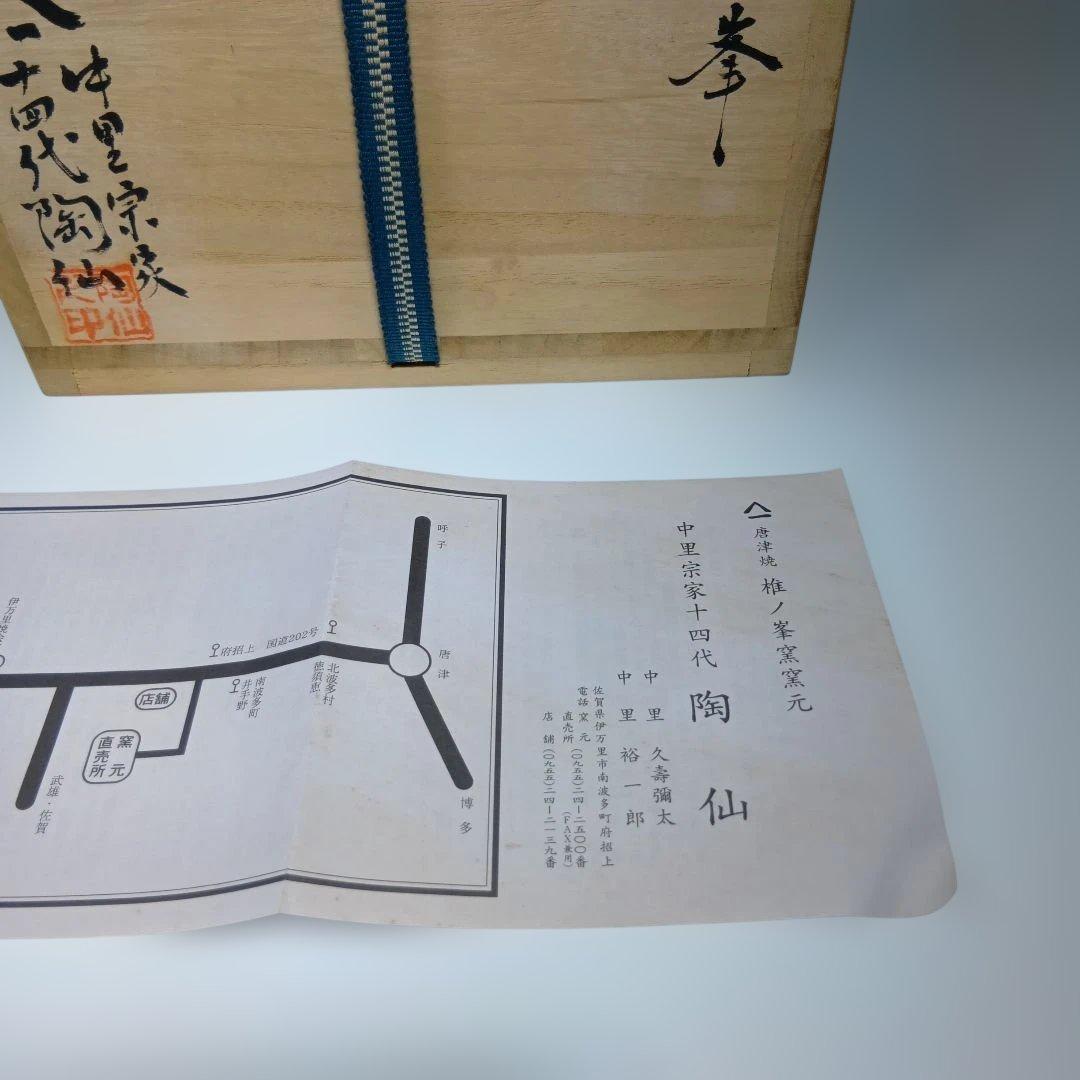 峯
中里宗家
十四代陶仙
陶仙
之印
唐津焼 椎ノ峯窯窯元
中里宗家十四代 陶仙
中里 久壽彌太
中里 裕一郎
佐賀県伊万里市南波多町府招上
電話 窯元 (〇九五五)二四ー二五〇〇番
直売所 (FAX兼用)
店舗 (〇九五五)二四ー二一三九番
呼子
唐津
博多
北波多村
徳須恵
国道202号
府招上
南波多町
井手野
店舗
窯元
直売所
武雄・佐賀